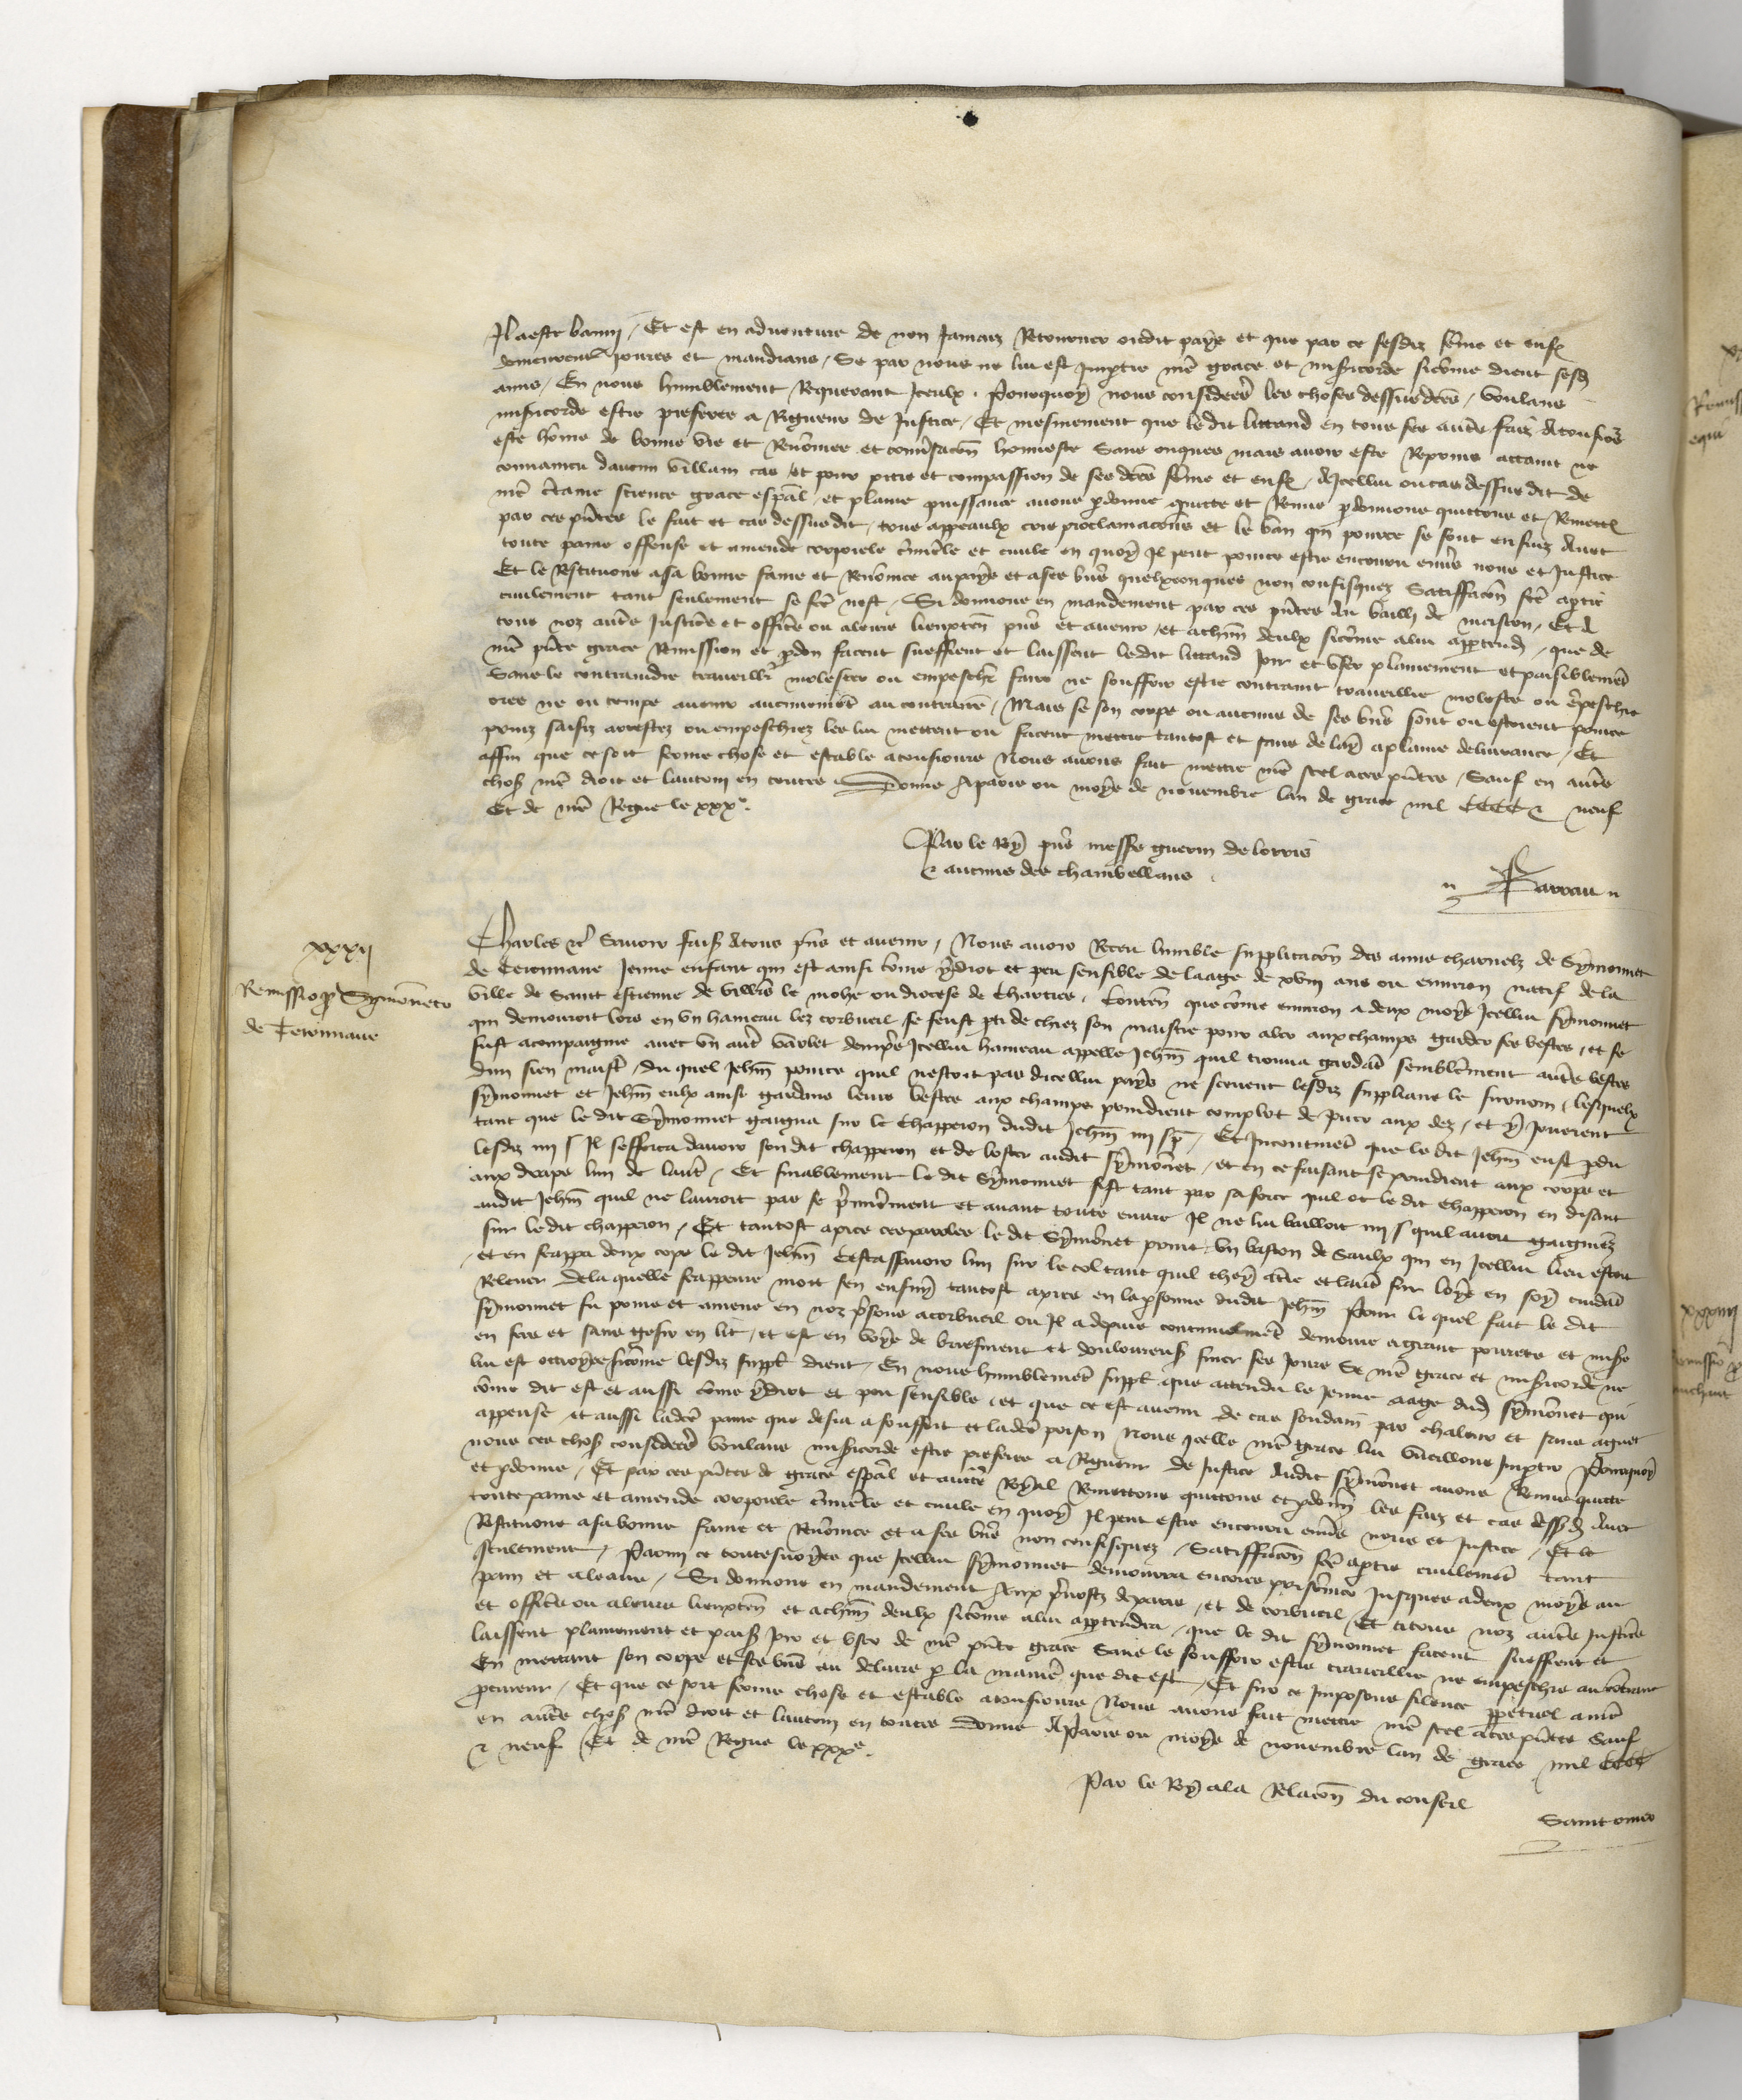 Il a este banny / Et est en adventure de non Jamais Retourner oudit pays et que par ce sesdiz feme et enfs
demeurent povres et mandians / Se par nous ne lui est Imptie nre grace et misicorde sicome dient sesd
amis / En nous humblement Requerant Iceulx . Pourquoy nous considere les choses dessusdites / voulans
misicorde estre preferee a Rigueur de Justice / Et mesmement que ledit littand en tous ses autres faiz a tousiours
este home de bonne vie et Renomee et conversacon honneste sans onques mais avoir este Reprins attaint ne
convaincu daucun villain cas / et pour pitie et compassion de ses dites feme et enfs / A Icellui ou cas dessus dit de
nre certaine science grace espal et plaine puissance avons pdonne quitte et Remis pdonnons quittons et Remett
par ces pntes le fait et cas dessusdit / tous appeaulx cris proclamacons et le ban qui pour ce se sont ensuiz Avec
toute paine offense et amende corporele criminele et civile en quoy Il peut pour ce estre encouru envers nous et Justice
Et le Restituons a sa bonne fame et Renomee au pays et a ses biens quelxconques non confisquez Satisfacon fcte aptie
civilement tant seulement se fcte nest / Si donnons en mandement par ces pntes au bailli de mascon / Et A
tous noz autres Justiciers et officiers ou aleurs lieuxten pns et avenir / et a chun deulx sicome a lui apptend / que de
nre pnte grace Remission et pdon facent sueffrent et laissent ledit littand Joir et user plainement et paisiblement
Sans le contraindre traveillier molester ou empeschier faire ne souffrir estre contraint traveillie moleste ou empeschie
ores ne ou temps avenir aucunement au contraire / Mais se son corps ou aucuns de ses biens sont ou estoient pour ce
prins saisiz arrestez ou empeschiez les lui mettent ou facent mettre tantost et sans delay a plaine delivrance / Et
affin que ce soit ferme chose et estable a tousiours Nous avons fait mettre nre scel a ces pntes / Sauf en autres
chos nre droit et lautrui en toutes Donne A paris ou moys de novembre lan de grace mil CCCC & neuf
Et de nre Regne le xxxe.
Par le Roy pns messe guerin de lorris
& aucuns des chambellans .
Barrau
xxxij
Remissio p Symoneto
de Teronnane
Charles &c Savoir fais A tous pns et avenir / Nous avoir Receu lumble supplicacon des amis charnelz de Symonnet
de Teronnane Jeune enfant qui est ainsi come ydiot et peu sensible de laage de xviij ans ou environ natif de la
ville de Saint estienne de villers le mohe ou diocese de Chartres . Conten que come environ a deux moys Icellui Symonnet
qui demouroit lors en un hameau lez corbueil se feust pti de chiez son maistre pour aler aux champs garder ses bestes / et se
fust acompaigne avec un autre varlet dempres Icellui hameau appelle Jehan quil trouva gardant semblement autres bestes
dun sien maistre / du quel Jehan pour ce quil nestoit pas dicellui pays ne scevent lesdiz supplians le surnom / lesquelx
Symonnet et Jehan eulx ainsi gardans leurs bestes aux champs prindrent complot de Juer aux dez / et y Jouerent
tant que le dit Symonnet gaigna sur le Chapperon dudit Jehan iiij s p / Et Incontinent que le dit Jehan eust pdu
lesdiz iiij s Il sefforca davoir son dit chapperon et de loster audit Symonet / et en ce faisant se prindrent aux corps et
aux draps lun de lautre / Et finablement le dit Symonnet fist tant par sa force quil ot le dit Chapperon en disant
audit Jehan quil ne lauroit pas se premierement et avant toute euvre Il ne lui bailloit iiij s quil avoit gaigniez
sur ledit chapperon / Et tantost apres ces paroles le dit Symonet print un baston de Saulx qui en Icellui lieu estoit
/ et en frappa deux cops le dit Jehan Cest assavoir lun sur le col tant quil chey a terre et lautre sur loye en soy cuidant
Relever De la quelle frappeure mort sen ensuy tantost apres en la psonne dudit Jehan Pour le quel fait le dit
Symonnet fu prins et amene en noz prisons a corbueil ou Il a depuis continuelment demoure a grant povrete et misere
en fers et sans gesir en lit / et est en voye de briefment et douloureus finer ses Jours Se nre grace et misicorde ne
lui est ottroyee sicome lesdiz suppl dient / En nous humblement suppl que attendu le Jeune aage dud Symonet qui
come dit est et aussi come ydiot et peu sensible / et que ce est avenu de cas soudain par chaleur et sans aguet
appense et aussi ladte paine que desia a souffert et ladte prison Nous Icelle nre grace lui vueillons Imptir Pourquoy
nous ces chos considere voulans misicorde estre preferee a Rigueur de Justice Audit Symonet avons Remis quitte
et pdonne / Et par ces pntes de grace espal et auctte Royal Remettons quittons et pdonn les faiz et cas dessusd Avec
toute paine et amende corporele criminele et civile en quoy Il peut estre encouru envers nous et Justice / Et le
Restituons a sa bonne fame et Renomee et a ses biens non confisquez / Satisfacon fcte a ptie civilement tant
seulement / Parmi ce toutesvoyes que Icellui Symonnet demourra encores prisonnier Jusques a deux moys au
pain et a leaue / Si donnons en mandement Aux prevostz de paris / et de corbueil Et a tous noz autres Justiciers
et officiers ou a leurs lieuxten et a chun deulx sicome a lui apptendra / que le dit Symonnet facent sueffrent et
laissent plainement et paisibl Joir et user de nre pnte grace Sans le souffrir estre traveillie ne empeschie au contraire
En mettant son corps et ses biens au delivre p la maniere que dit est / Et sur ce Imposons silence ppetuel a nre
procureur / Et que ce soit ferme chose et estable a tousiours Nous avons fait mettre nre scel a ces pntes Sauf
en autres chos nre droit et lautrui en toutes Donne A Paris ou moys de novembre lan de grace mil CCCC
& neuf Et de nre Regne le xxxe.
Par le Roy a la Relacon du conseil
Saint omer
xxxiiij